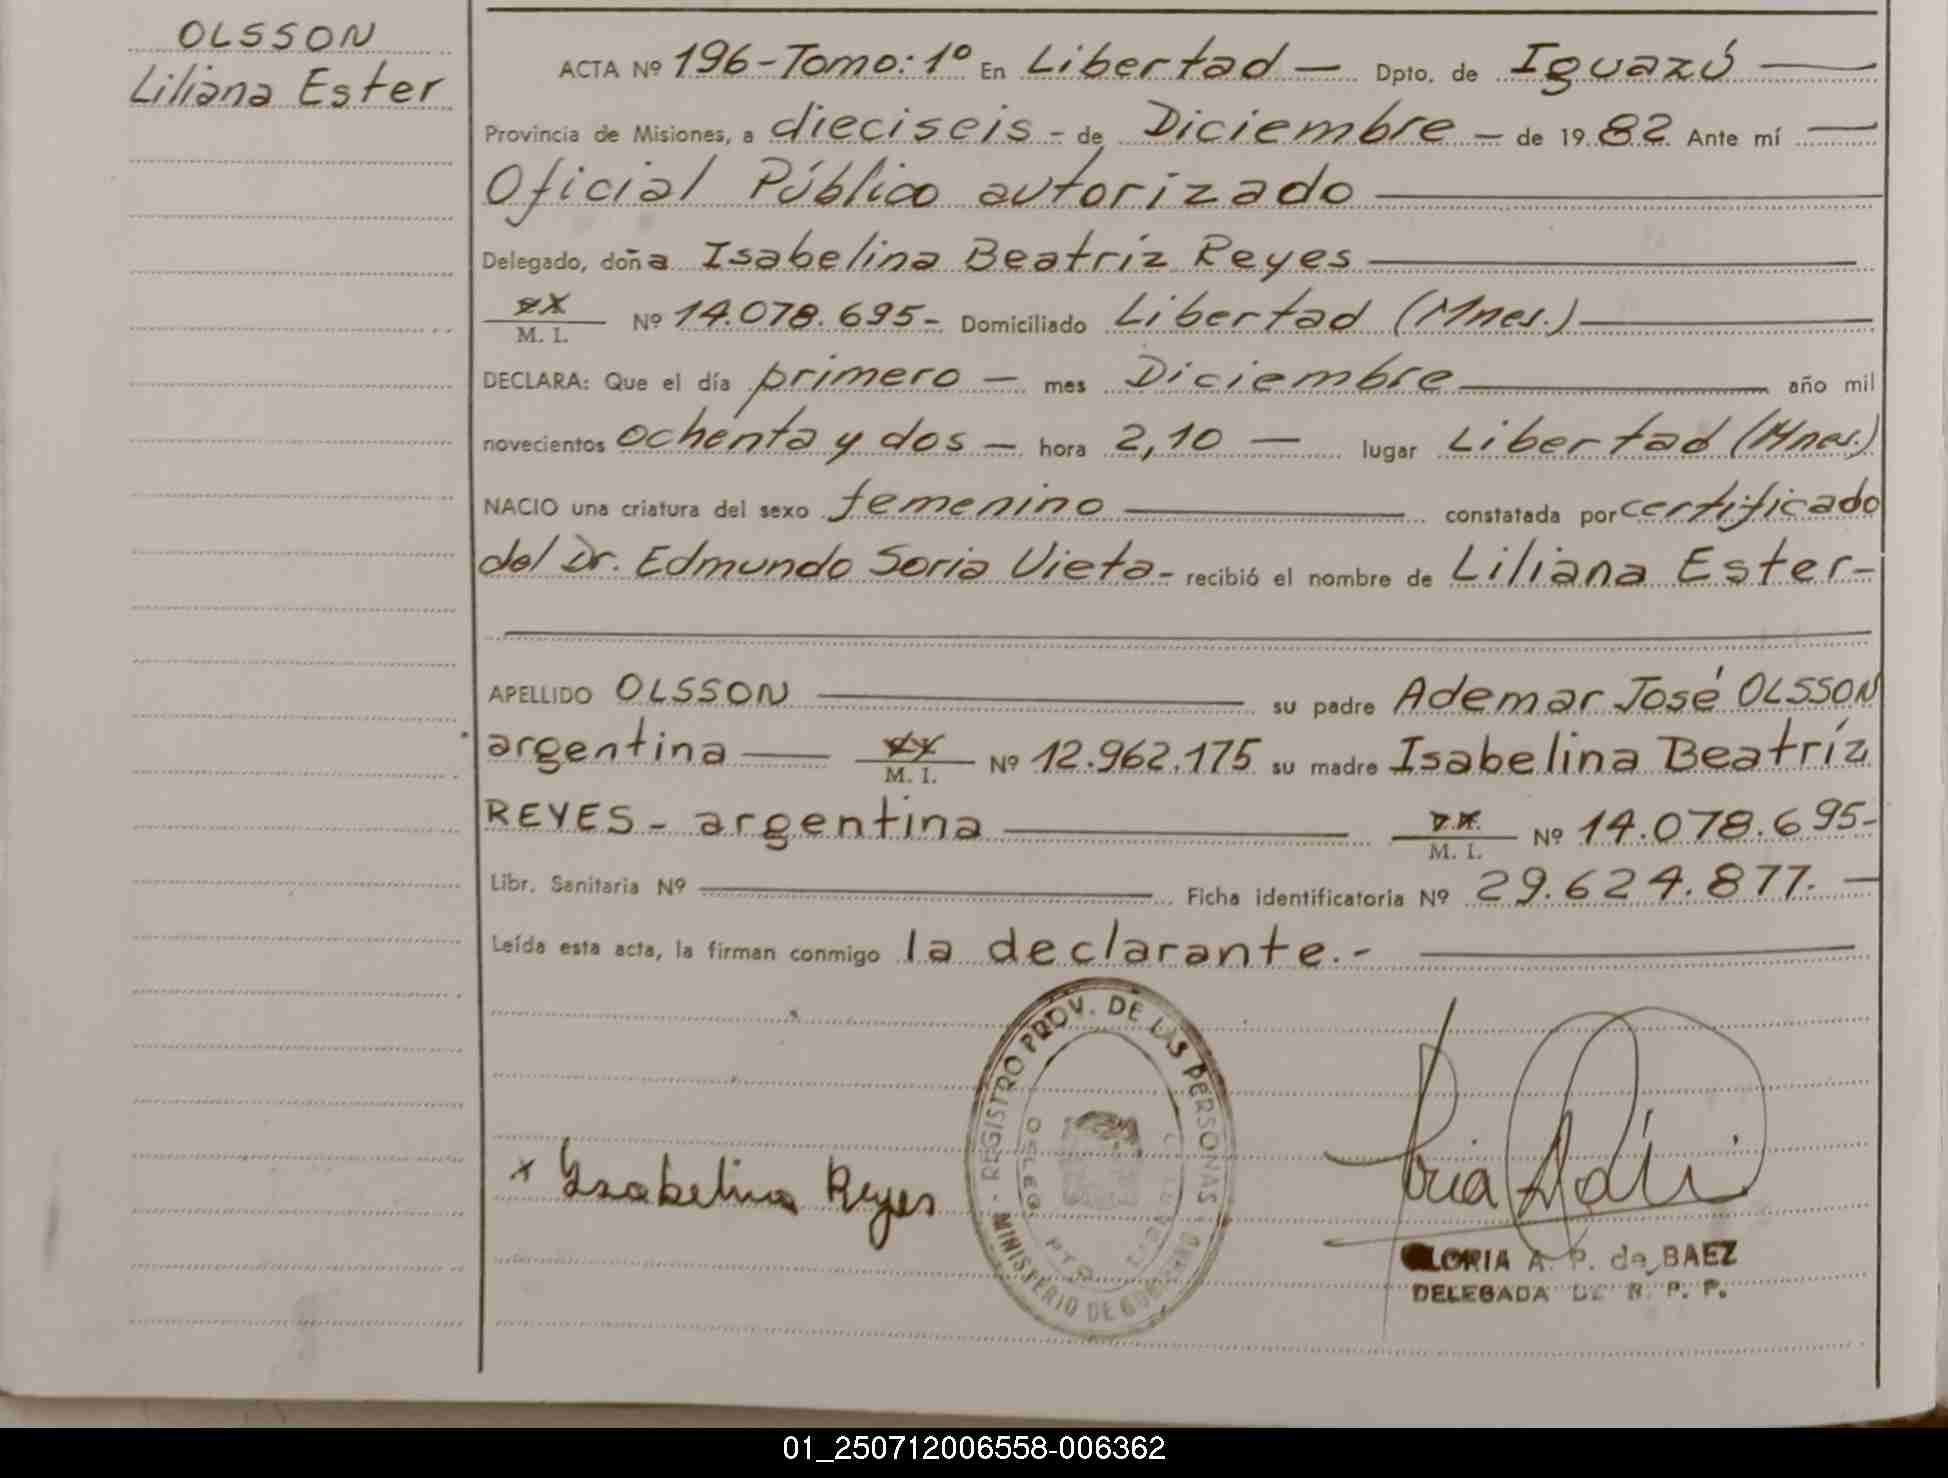 OLSSON
Liliana Ester
ACTA Nº 196-Tomo: 1º En Libertad — Dpto. de Iguazú —
Provincia de Misiones, a dieciseis - de Diciembre - de 1982 Ante mí —
Oficial Público autorizado
Delegado, doña Isabelina Beatríz Reyes
M. I. Nº 14.078.695- Domiciliado Libertad (Mnes.)
DECLARA: Que el día primero — mes Diciembre año mil
novecientos ochenta y dos — hora 2,10 — lugar Libertad (Mnes.)
NACIO una criatura del sexo femenino constatada por certificado
del Dr. Edmundo Soria Vieta- recibió el nombre de Liliana Ester-
APELLIDO OLSSON su padre Ademar José OLSSON
argentina — M. I. Nº 12.962.175 su madre Isabelina Beatríz
REYES - argentina M. I. Nº 14.078.695-
Libr. Sanitaria Nº Ficha identificatoria Nº 29.624.877. —
Leída esta acta, la firman conmigo la declarante.-
REGISTRO PROV. DE LAS PERSONAS
MINISTERIO DE GOBIERNO
x Isabelina Reyes
GLORIA A. P. de BAEZ
DELEGADA DE R. P. P.
01_250712006558-006362